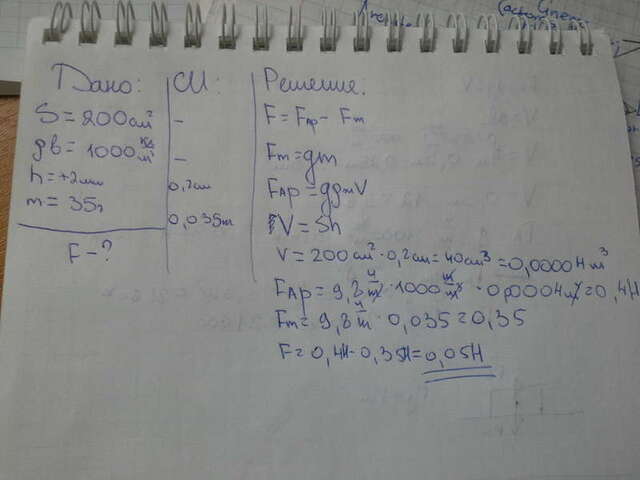 Дано:
S = 200 см²
ρв = 1000 кг/м³
h = 2мм
m = 35г
F - ?
СИ:
-
-
0,2см
0,035
Решение:
F = FAp - Fm
Fm = gm
FAp = gρжV
V = Sh
V = 200см² · 0,2см = 40см³ = 0,00004м³
FAp = 9,8 · 1000 · 0,00004 = 0,4Н
Fm = 9,8 · 0,035 = 0,35
F = 0,4Н - 0,35Н = 0,05Н